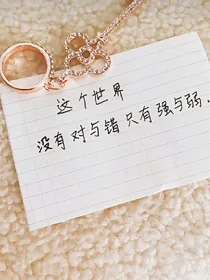 这个世界
没有对与错只有强与弱.